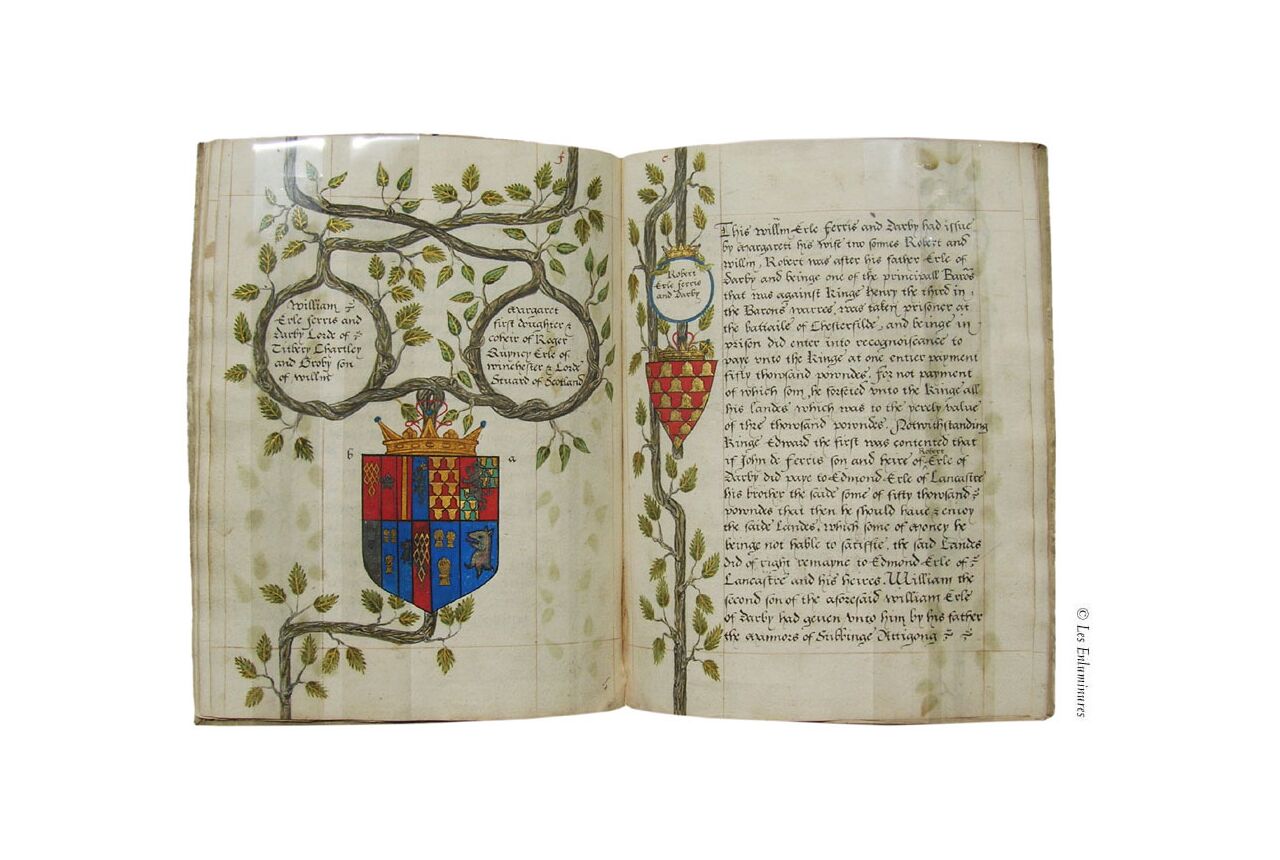 William
Erle ferris and
Darby Lorde of
Titbery Chartley
and Groby son
of willm
Margaret
first doughter &
coheir of Roger
Quyncy Erle of
winchester & Lorde
Stuard of Scotland
b
a
Robert
Erle ferris
and Darby
This willm Erle ferris and Darby had issue
by Margarett his wife two sonnes Robert and
willm, Robert was after his father Erle of
Darby and beinge one of the principall Barōs
that was against Kinge henry the third in
the Barons warres, was taken prisoner at
the battaile of Chesterfilde, and beinge in
prison did enter into recognoiscance to
paye vnto the Kinge at one entier payment
fifty thousand powndes. for not payment
of which som, he forfeted vnto the Kinge all
his landes which was to the yerely value
of thre thowsand powndes. Notwithstanding
Kinge Edward the first was contented that
Robert
if John de ferris son and heire of Erle of
Darby did paye to Edmond Erle of Lancastre
his brother the saide some of fifty thowsand
powndes that then he should have & enioy
the saide Landes. which some of money he
beinge not hable to satisfie, the said Landes
did of right remayne to Edmond Erle of
Lancastre and his heires. William the
second son of the aforesaid william Erle
of Darby had geven vnto him by his father
the mannors of
© Les Enluminures